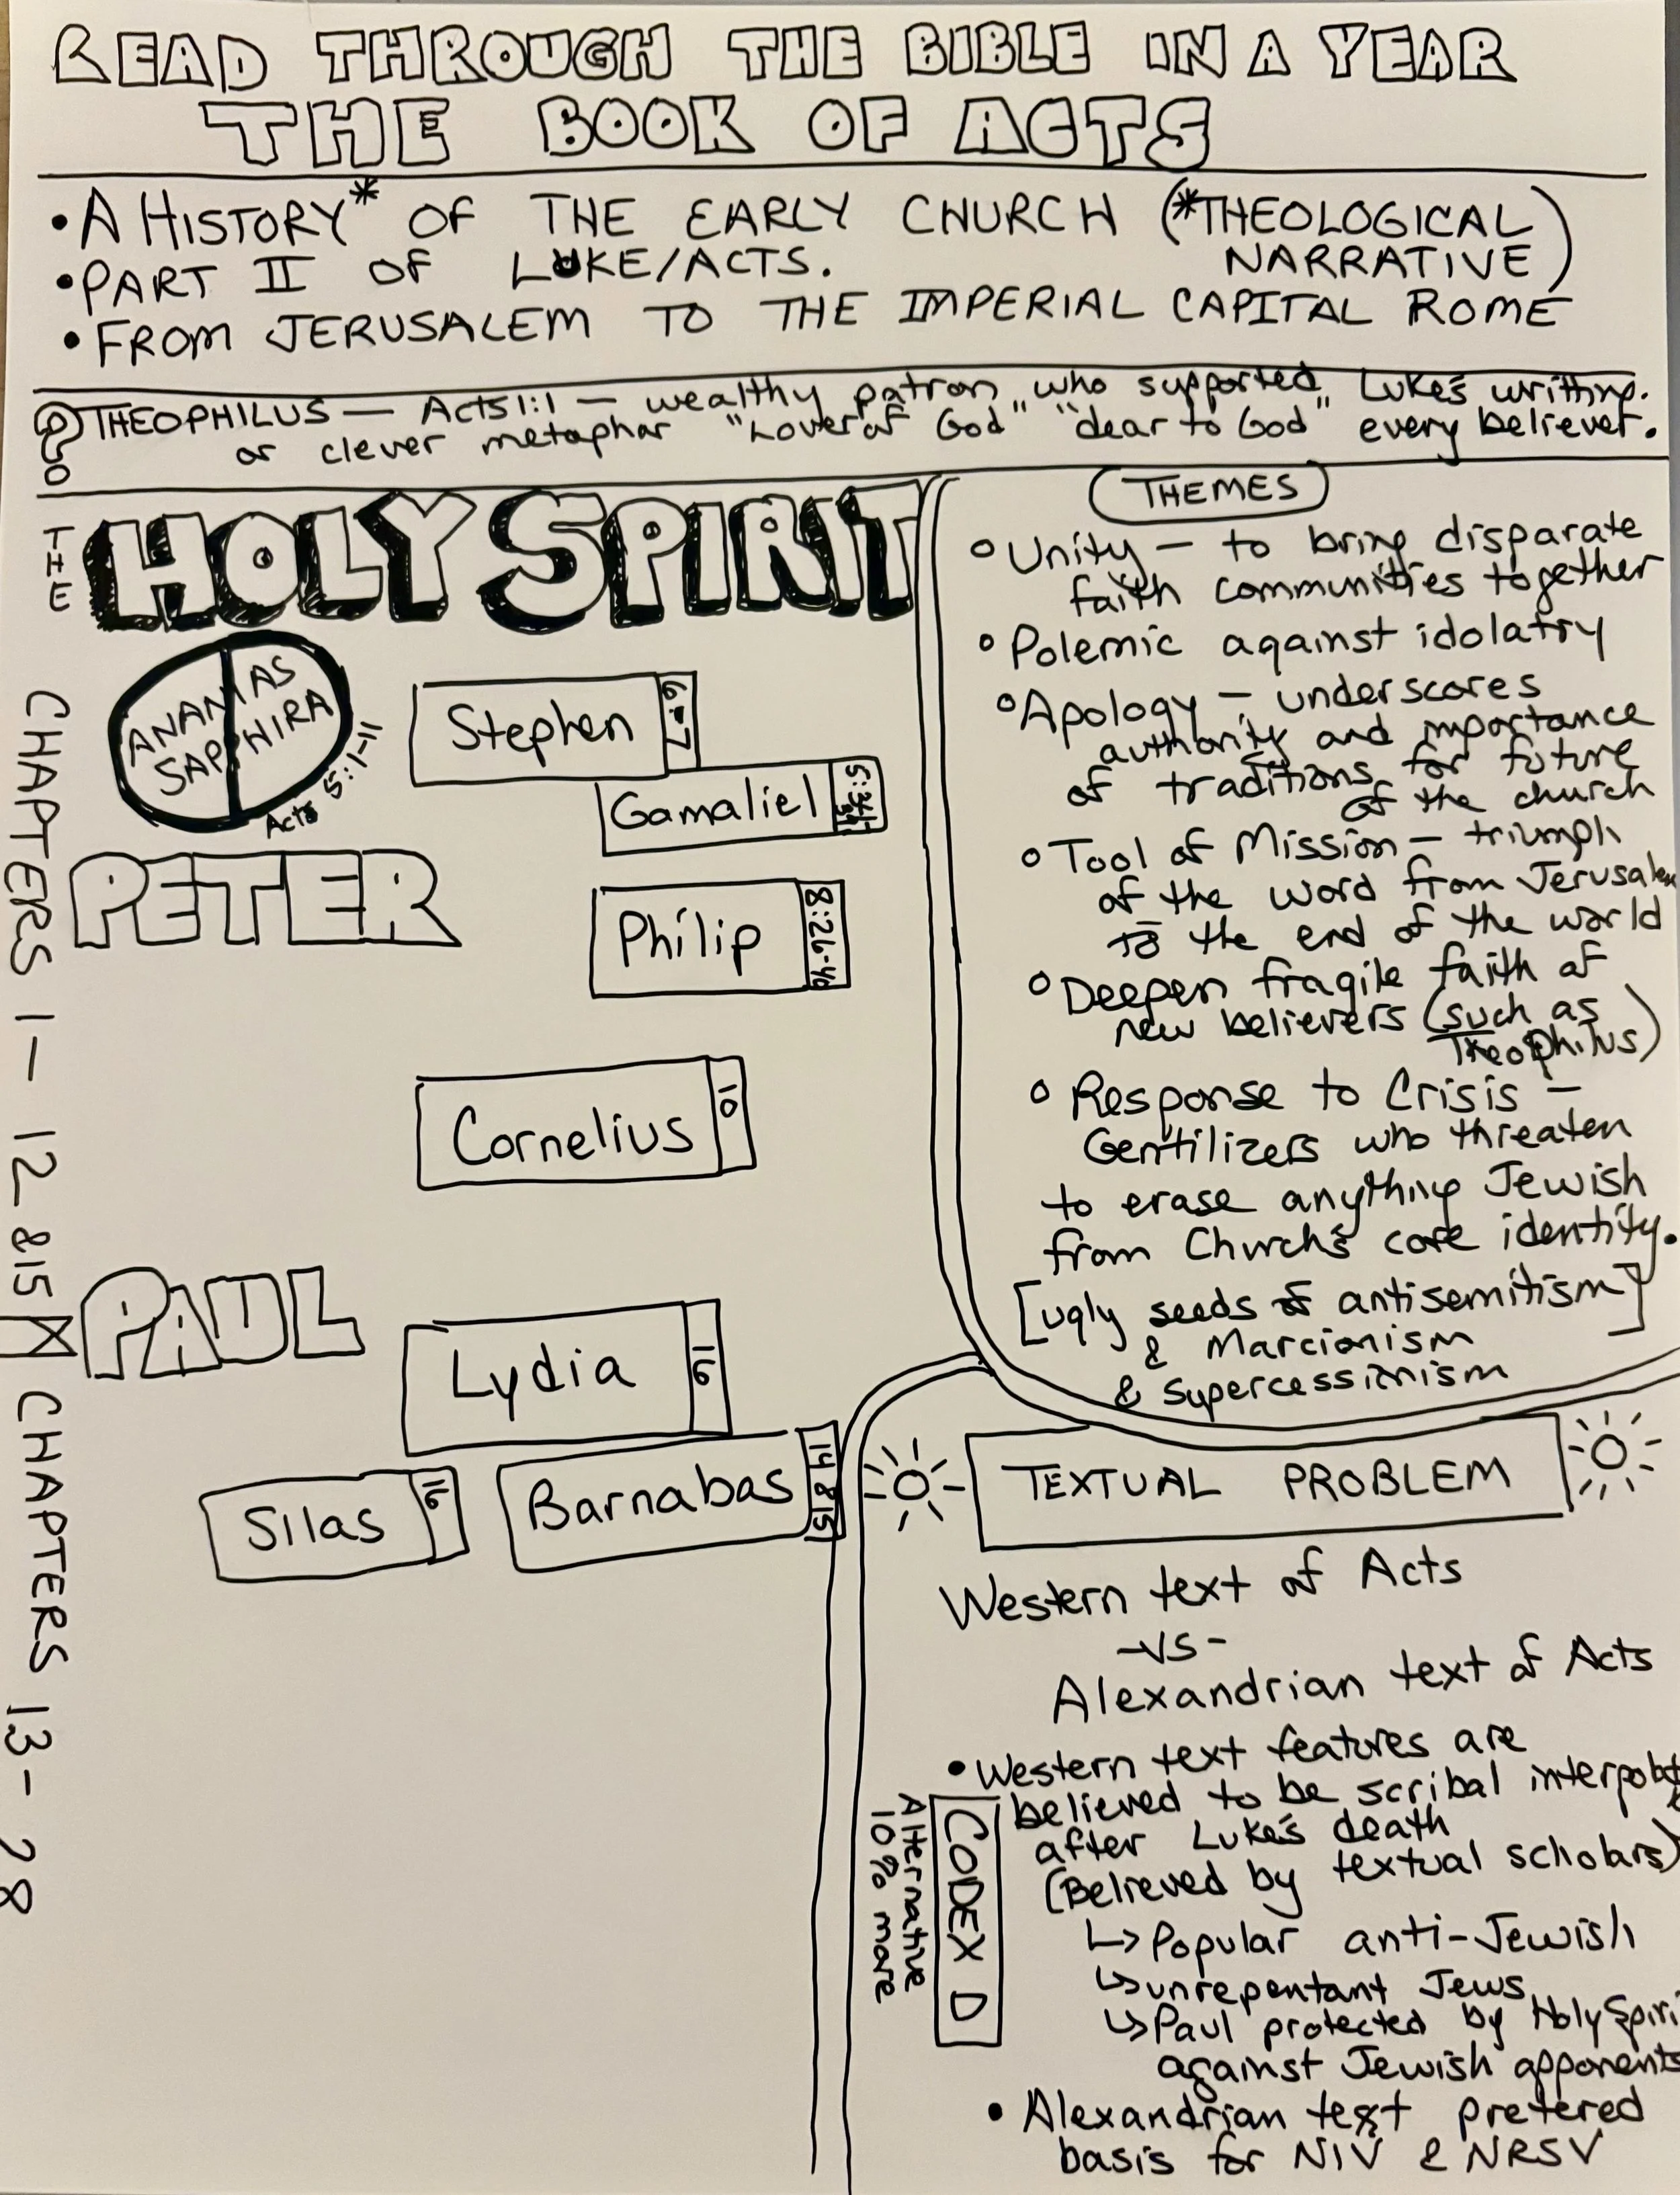 READ THROUGH THE BIBLE IN A YEAR
THE BOOK OF ACTS
• A HISTORY* OF THE EARLY CHURCH (*THEOLOGICAL
NARRATIVE)
• PART II OF LUKE/ACTS.
• FROM JERUSALEM TO THE IMPERIAL CAPITAL ROME
? THEOPHILUS — Acts 1:1 — wealthy patron who supported Luke's writing.
or clever metaphor "Lover of God" "dear to God" every believer.
THE HOLY SPIRIT
ANANIAS
SAPPHIRA
Acts 5:1-11
Stephen 6-7
Gamaliel
PETER
Philip 8:26-40
Cornelius 10
CHAPTERS 1-12 & 15
PAUL
Lydia 16
Silas 16
Barnabas 14 & 15
CHAPTERS 13-28
THEMES
○ Unity — to bring disparate
faith communities together
○ Polemic against idolatry
○ Apology — underscores
authority and importance
of traditions for future
of the church
○ Tool of Mission — triumph
of the word from Jerusalem
to the end of the world
○ Deepen fragile faith of
new believers (such as
Theophilus)
○ Response to Crisis —
Gentilizers who threaten
to erase anything Jewish
from Church's core identity.
[ugly seeds of antisemitism]
& Marcionism
& supercessionism
TEXTUAL PROBLEM
Western text of Acts
-VS-
Alexandrian text of Acts
• Western text features are
believed to be scribal
after Luke's death
(Believed by textual scholars)
↳ Popular anti-Jewish
↳ unrepentant Jews
↳ Paul protected by Holy Spiri
against Jewish opponents
CODEX D
Alternative
10% more
• Alexandrian text prefered
basis for NIV & NRSV